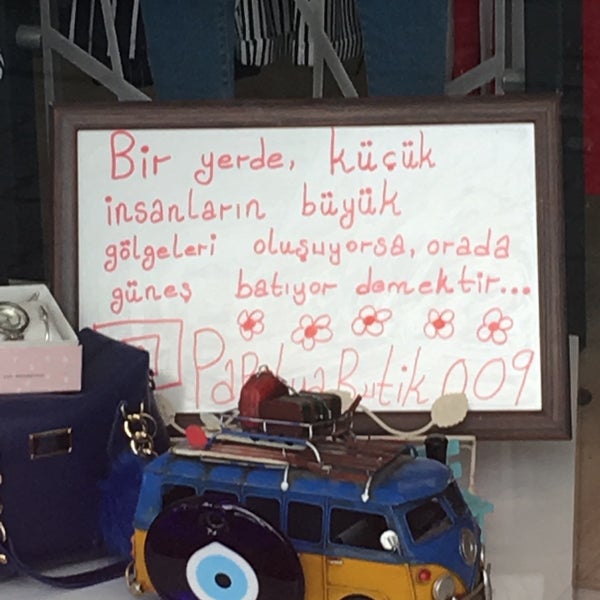 Bir yerde, küçük
insanların büyük
gölgeleri oluşuyorsa, orada
güneş batıyor demektir...
Butik 009